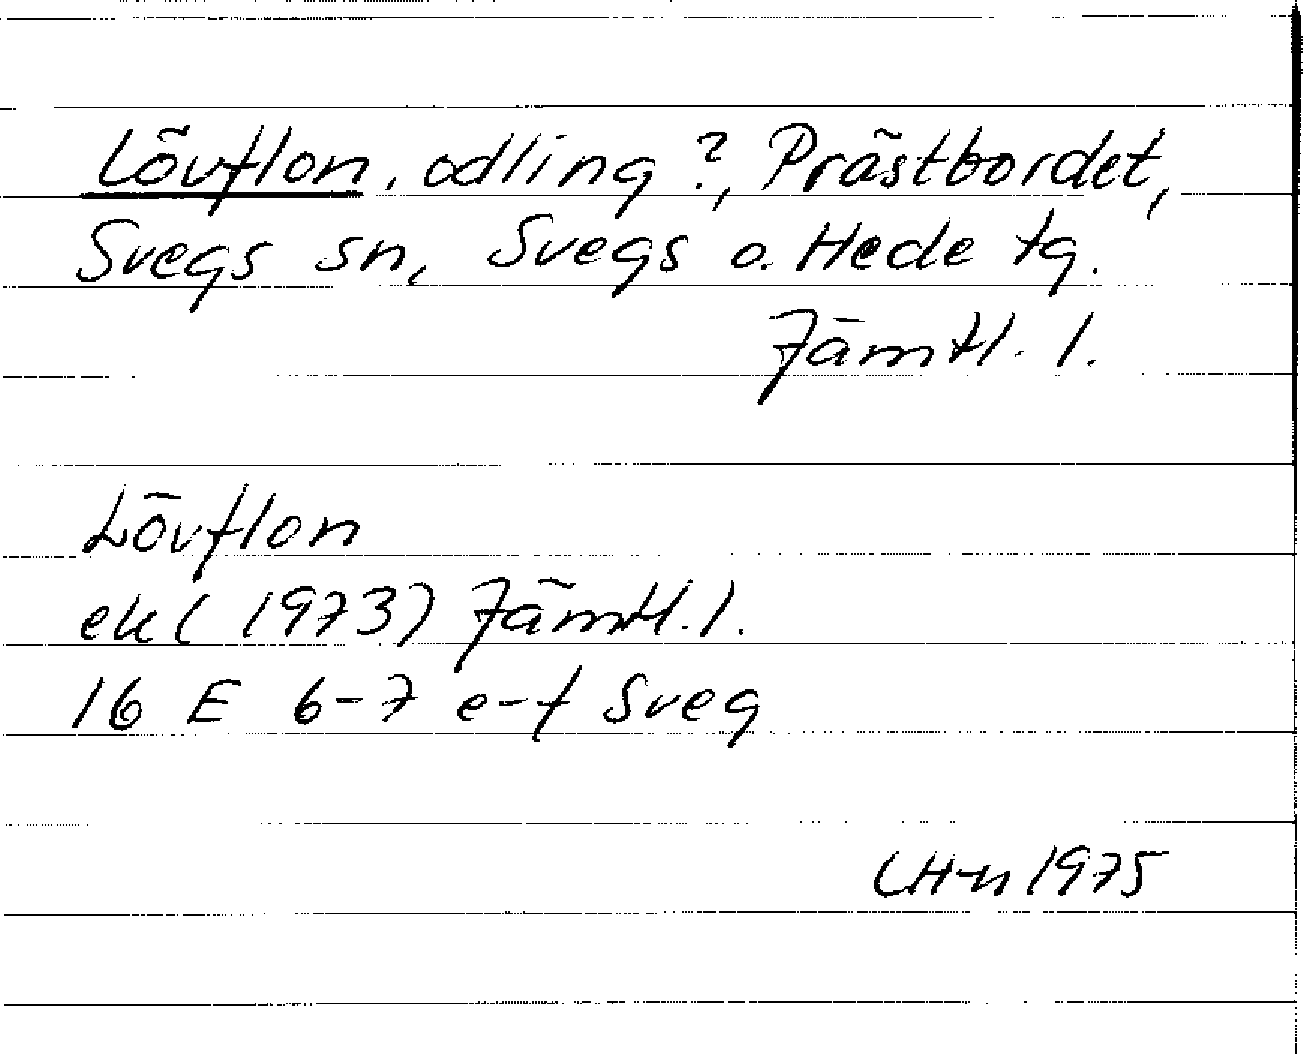 Lövflon, odling ?, Prästbordet,
Svegs sn, Svegs o. Hede tg.
Jämtl. l.
Lövflon
ek (1973) Jämtl. l.
16 E 6-7 e-f Sveg
CH-n 1975